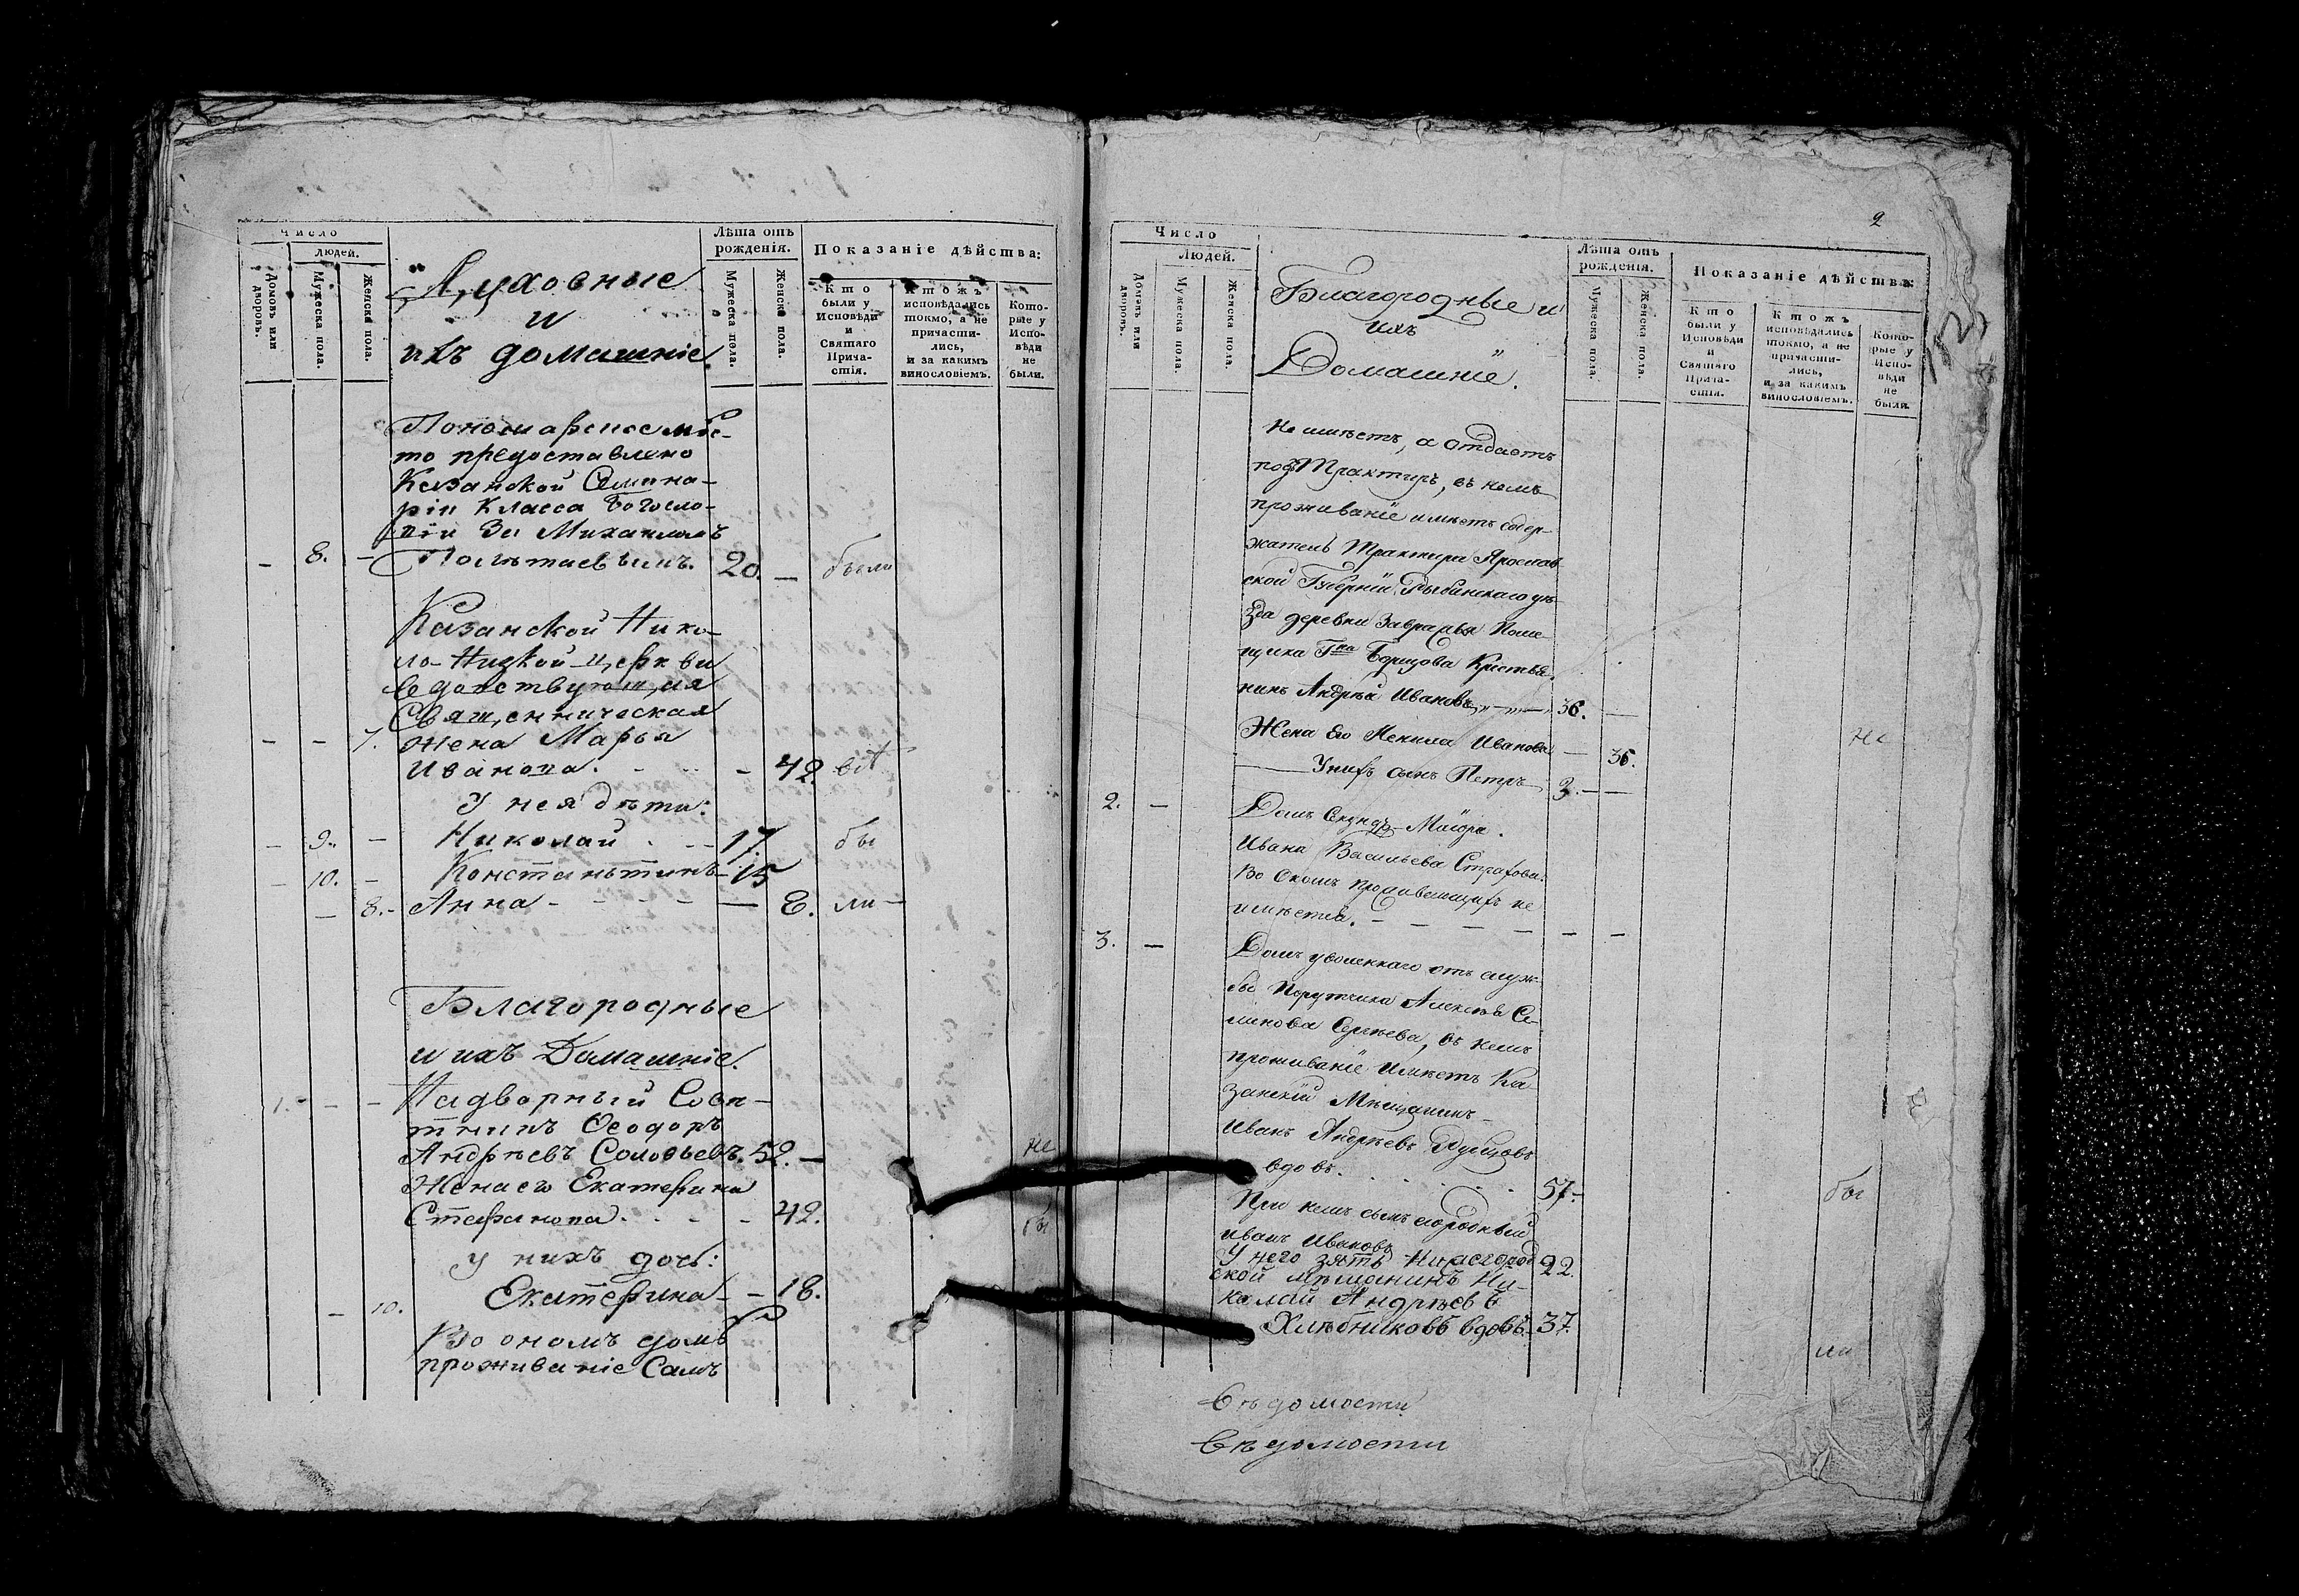 Число
Людей.
Домовъ или дворовъ.
Мужеска пола.
Женска пола.
Духовные
и
ихъ домашніе
Лѣта отъ рожденія.
Мужеска пола.
Женска пола.
Показаніе дѣйства:
Кто были у Исповѣди и Святаго Прича-
стія.
Ктожъ исповѣдались токмо, а не причасти-
лись, и за какимъ винословіемъ.
Кото-
рые у Испо-
вѣди не были.
Пономарское мѣс-
то предоставлено
Казанской Семина-
ріи Класса Богосло-
віи За Михаиломъ
- 8. - Полѣтаевымъ. 20. - были
Казанской Нико-
ло-Низкой церкви
вдовствующая
Священническая
- - 7. жена Марья
Иванова. - - 42.
У нея дѣти:
- 9. - Николай - - 17. бы
- 10. - Константинъ - 15
- 8. - Анна - - - - 8. ли -
Благородные
и ихъ Домашніе.
1. - - Надворный Совѣ-
тникъ Ѳеодоръ
Андрѣевъ Соловьевъ. 52. - не
Жена его Екатерина
Стефанова. - - 42. бы
у нихъ дочь:
- 10. Екатерина - - 18.
Во ономъ домѣ
проживаніе Самъ
2
Число
Людей.
Домовъ или дворовъ.
Мужеска пола.
Женска пола.
Благородные и
ихъ
Домашніе.
Лѣта отъ рожденія.
Мужеска пола.
Женска пола.
Показаніе дѣйства:
Кто были у Исповѣди и Святаго Прича-
стія.
Ктожъ исповѣдались токмо, а не причасти-
лись, и за какимъ винословіемъ.
Кото-
рые у Испо-
вѣди не были.
Не имѣетъ, а отдаетъ
подъ Трактиръ, въ немъ
проживаніе имѣетъ содер-
жатель Трактира Ярослав
ской Губерніи Рыбинскаго уѣ-
зда деревни Поме-
щика Гна Борщова Крестья-
нинъ Андрѣй Ивановъ - 36. -
Жена Его Иванова - 36. не
У нихъ сынъ Петръ 3. -
2. - Домъ Секундъ-Маіора
Ивана Васильева Страхова.
Во ономъ проживающихъ не
имѣется. - - - - - -
3. - Домъ уволеннаго отъ служ-
бы Порутчика Алексѣя Се-
менова Сергѣева, въ немъ
проживаніе Имѣетъ Ка
занскій Мѣщанинъ
Иванъ Андрѣевъ
вдовъ. 57. - бы
При немъ сынъ
Иванъ Ивановъ 22.
У него зять Нижегород
ской мѣщанинъ Ни-
колай Андрѣевъ
Хлѣбниковъ вдовъ. 37. ли
Вѣдомости
Вѣдомости